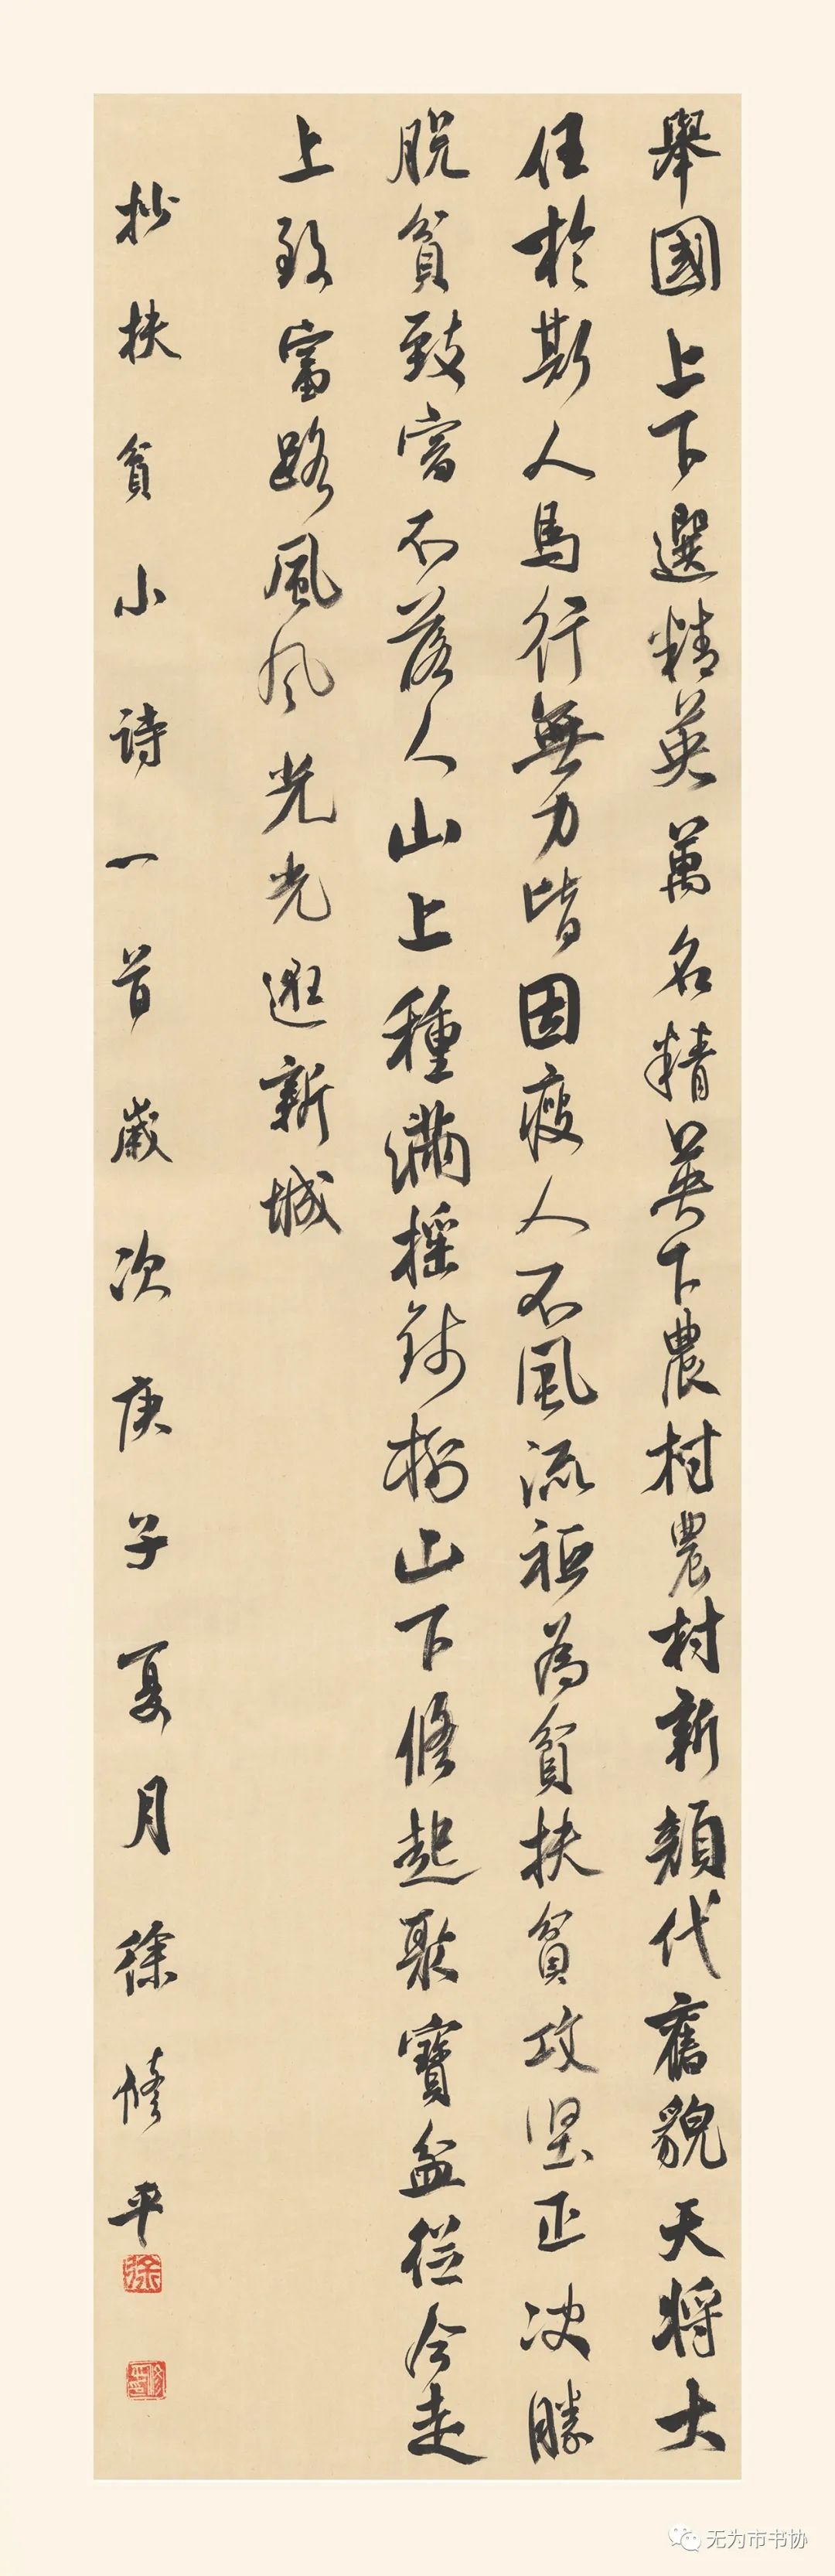 舉國上下選精英萬名精英下農村農村新顏代舊貌天將大
任於斯人馬行無力皆因瘦人不風流祗為貧扶貧攻坚正决勝
脱貧致富不落人山上種滿摇錢樹山下修起聚寶盆從今走
上致富路風风光光逛新城
抄扶貧小诗一首歲次庚子夏月徐修平
徐
无为市书协